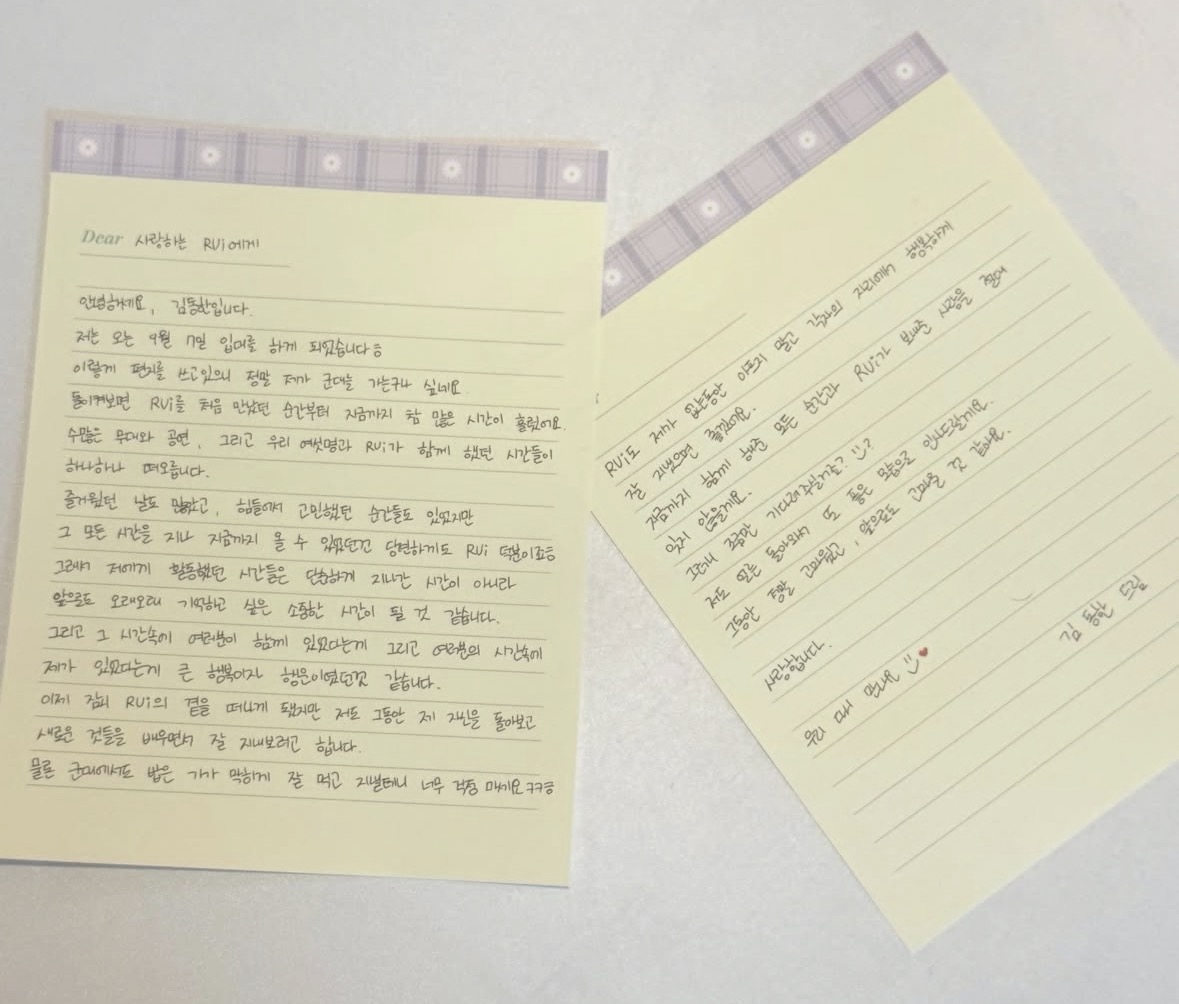 Dear 사랑하는 RUi에게
안녕하세요, 김동한입니다.
저는 오는 9월 7일 입대를 하게 되었습니다ㅎ
이렇게 편지를 쓰고있으니 정말 제가 군대를 가는구나 싶네요
돌이켜보면 RUi를 처음 만났던 순간부터 지금까지 참 많은 시간이 흘렀어요.
수많은 무대와 공연, 그리고 우리 여섯명과 RUi가 함께 했던 시간들이
하나하나 떠오릅니다.
즐거웠던 날도 많았고, 힘들어서 고민했던 순간들도 있었지만
그 모든 시간을 지나 지금까지 올 수 있었던건 당연하게도 RUi 덕분이죠ㅎ
그래서 저에게 활동했던 시간들은 단순하게 지나간 시간이 아니라
앞으로도 오래오래 기억하고 싶은 소중한 시간이 될 것 같습니다.
그리고 그 시간속에 여러분이 함께 있었다는게 그리고 여러분의 시간속에
제가 있었다는게 큰 행복이자 행운이였던것 같습니다.
이제 잠시 RUi의 곁을 떠나게 됐지만 저도 그동안 제 자신을 돌아보고
새로운 것들을 배우면서 잘 지내보려고 합니다.
물론 군대에서도 밥은 기가 막히게 잘 먹고 지낼테니 너무 걱정 마세요ㅋㅋㅎ
RUi도 제가 없는동안 아프지 말고 각자의 자리에서 행복하게
잘 지냈으면 좋겠어요.
지금까지 함께 해준 모든 순간과 RUi가 보내준 사랑을 절대
잊지 않을게요.
그러니 조금만 기다려주실거죠?
저도 얼른 돌아와서 또 좋은 모습으로 인사드릴게요.
그동안 정말 고마웠고, 앞으로도 고마울 것 같아요.
사랑합니다.
우리 다시 만나요 ♥
김동한 드림